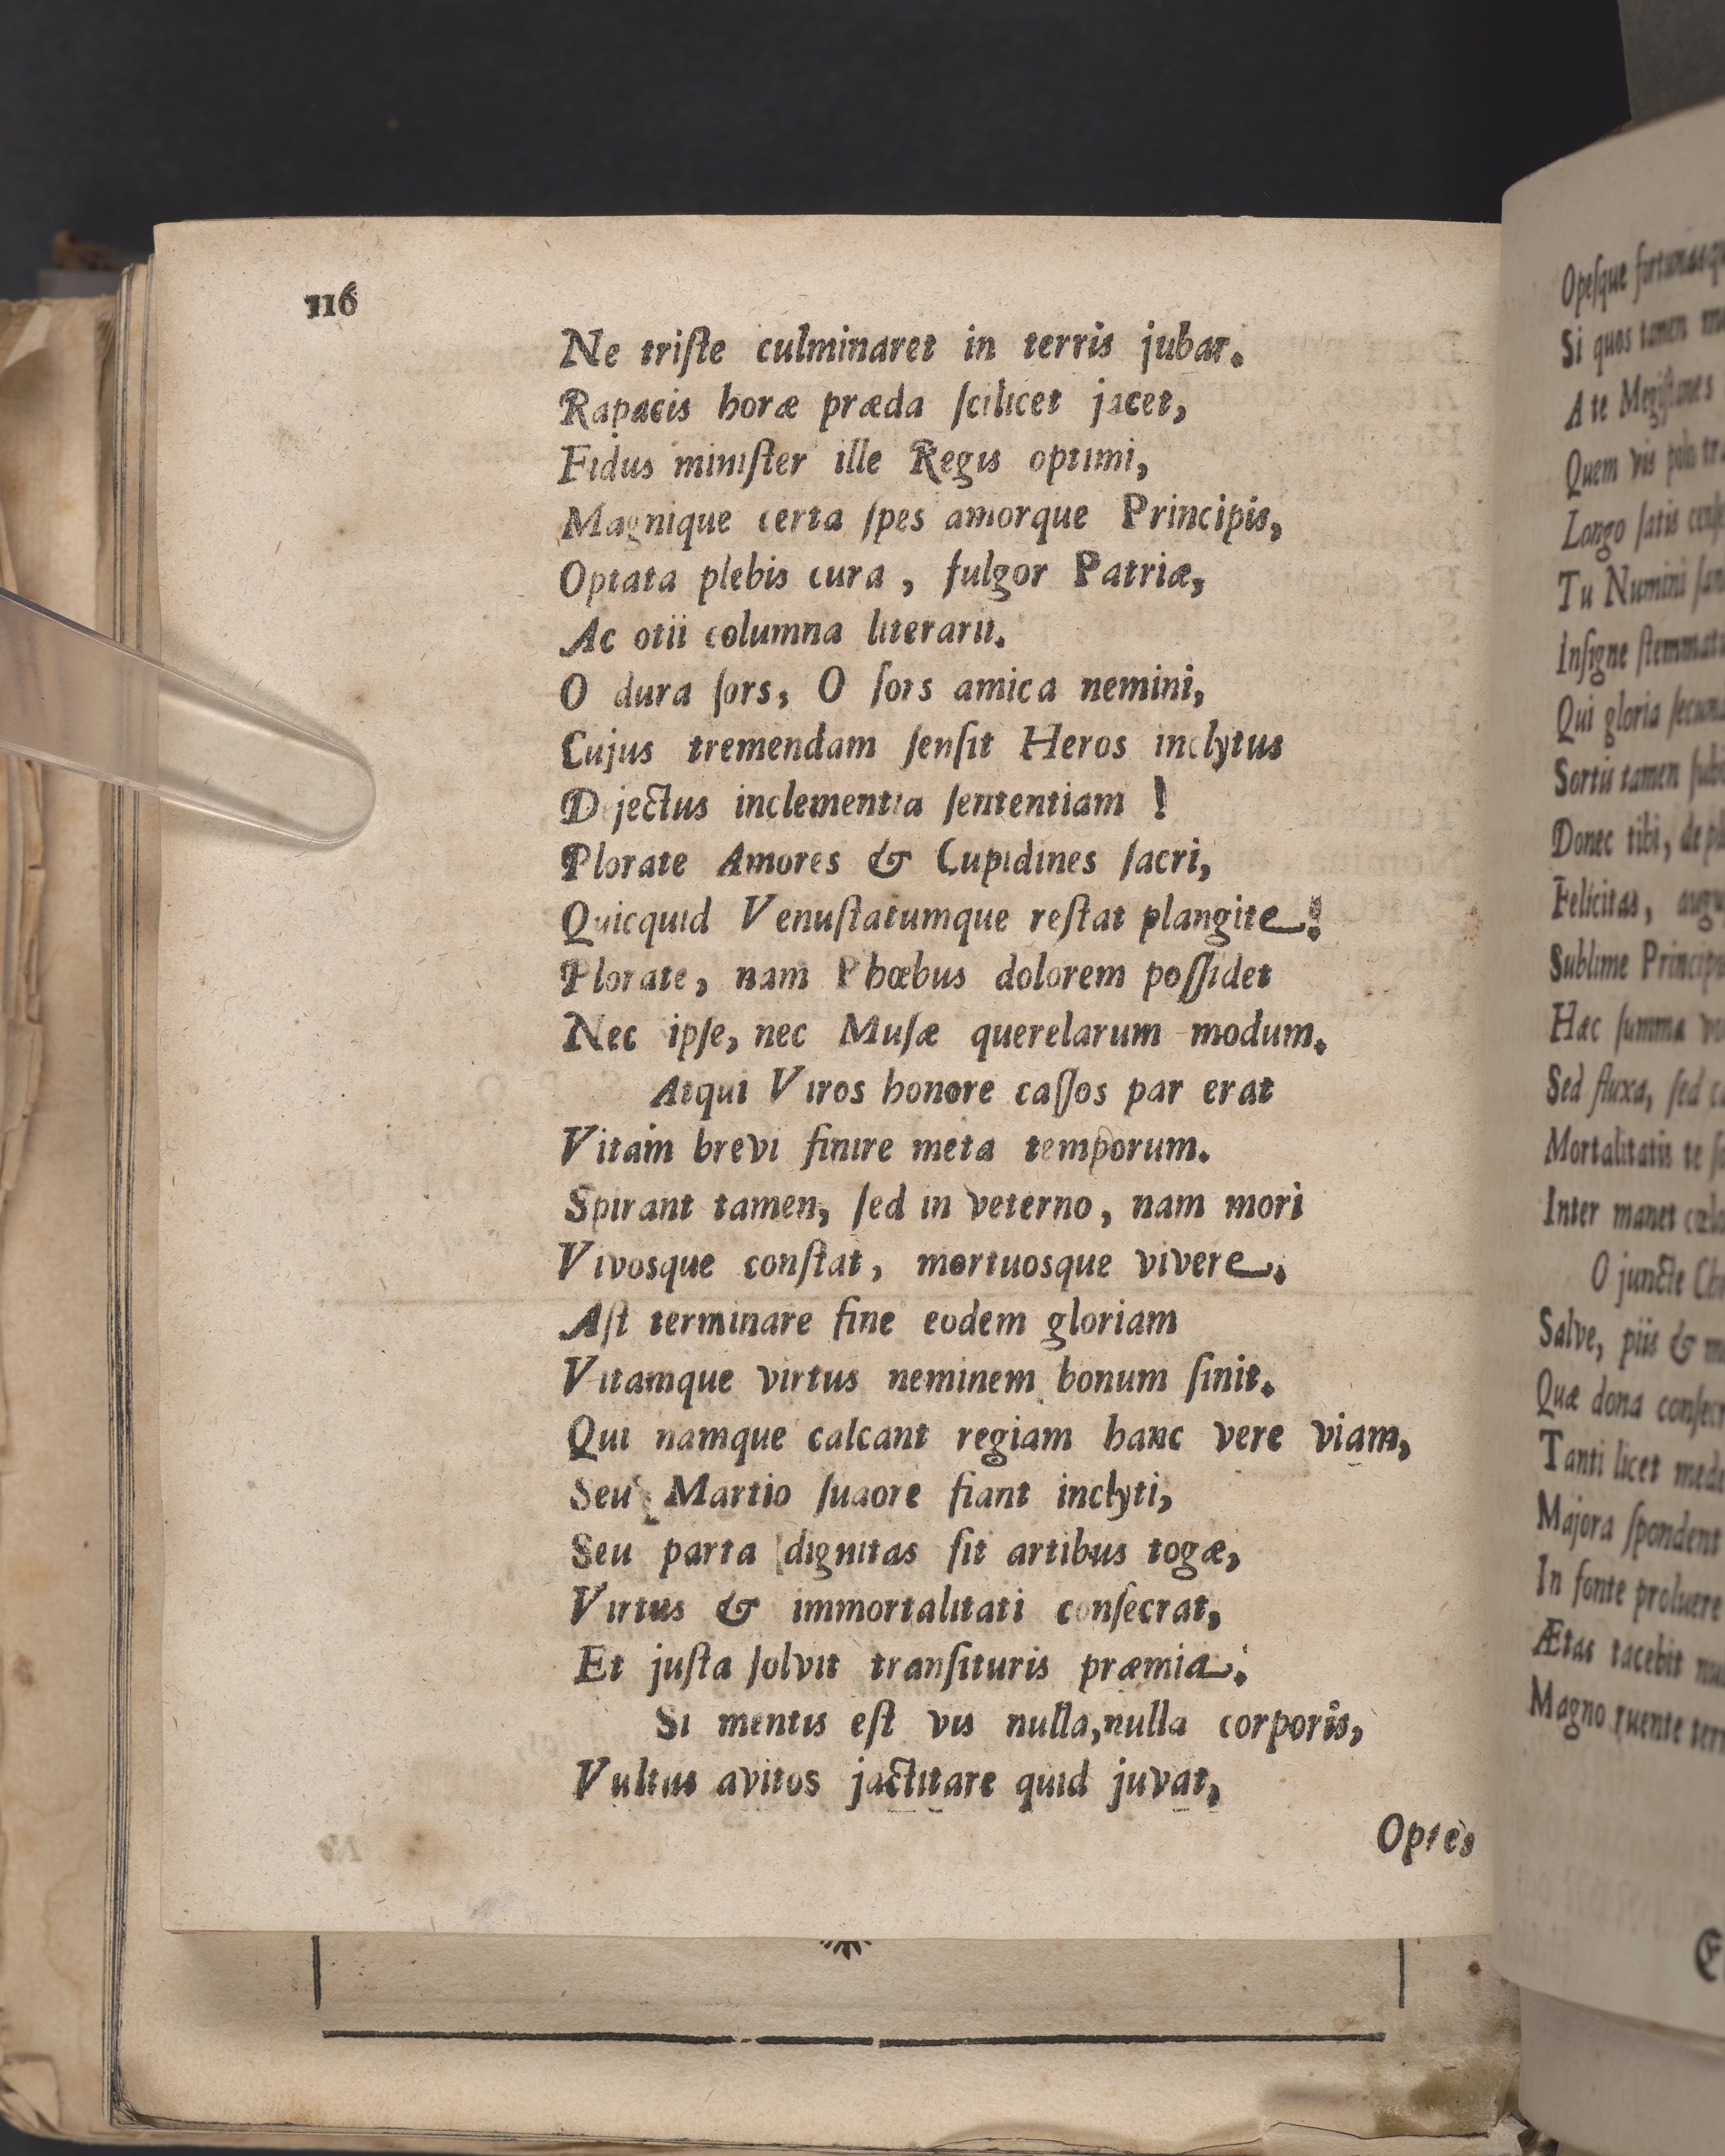 116
Ne triſte culminaret in terris jubar.
Rapacis horæ præda ſcilicet jacet,
Fidus miniſter ille Regis optimi,
Magnique certa ſpes amorque Principis,
Optata plebis cura, fulgor Patriæ,
Ac otii columna literarii.
O dura ſors, O ſors amica nemini,
Cujus tremendam ſenſit Heros inclytus
Dejectus inclementia ſententiam!
Plorate Amores & Cupidines ſacri,
Quicquid Venuſtatumque reſtat plangite!
Plorate, nam Phœbus dolorem poſſidet
Nec ipſe, nec Muſæ querelarum modum.
Atqui Viros honore caſſos par erat
Vitam brevi finire meta temporum.
Spirant tamen, ſed in veterno, nam mori
Vivosque conſtat, mortuosque vivere.
Aſt terminare fine eodem gloriam
Vitamque virtus neminem bonum ſinit.
Qui namque calcant regiam hanc vere viam,
Seu Martio ſudore fiant inclyti,
Seu parta dignitas ſit artibus togæ,
Virtus & immortalitati conſecrat,
Et juſta ſolvit tranſituris præmia:
Si mentis eſt vis nulla, nulla corporis,
Vultus avitos jactitare quid juvat,
Opſes
Opeſque fortunasq
Si quos tamen
A te Megiſtanes
Quem vis
Longo ſatis
Tu Numini
Inſigne
Qui gloria
Sortis tamen
Donec tibi, de
Felicitas,
Sublime
Hac ſumma
Sed fluxa, ſed
Mortalitatis te
Inter manet
O juncte
Salve, piis &
Quæ dona
Tanti licet
Majora ſpondent
In fonte proluere
Ætas tacebit
Magno ruente